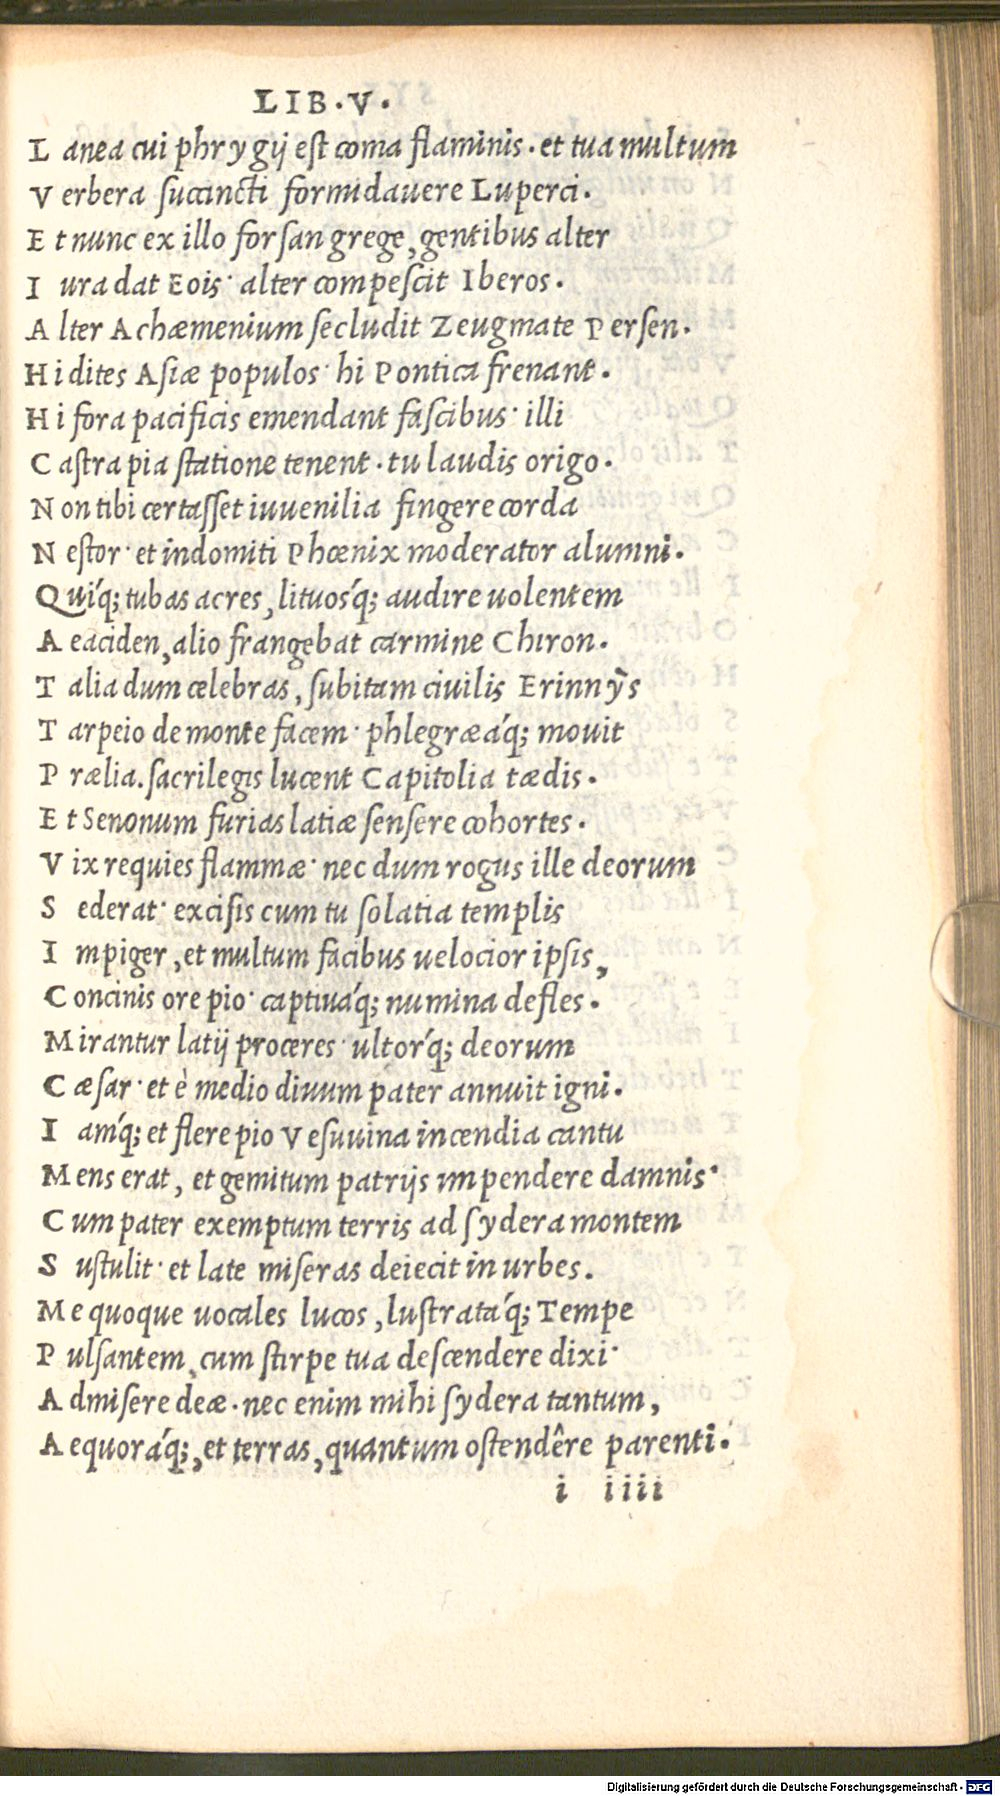 LIB.V.
Lanea cui phrygij est coma flaminis. et tua multum
Verbera succincti formidavere Luperci.
Et nunc ex illo forsan grege, gentibus alter
Iura dat Eois· alter compescit Iberos.
Alter Achæmenium secludit Zeugmate Persen.
Hi dites Asiæ populos· hi Pontica frenant.
Hi fora pacificis emendant fascibus· illi
Castra pia statione tenent. tu laudis origo.
Non tibi certasset iuvenilia fingere corda
Nestor· et indomiti Phœnix moderator alumni.
Quíq; tubas acres, lituosq́; audire uolentem
Aeaciden, alio frangebat carmine Chiron.
Talia dum celebras, subitam civilis Erinnys
Tarpeio de monte facem· phlegræáq; movit
Prælia. sacrilegis lucent Capitolia tædis.
Et Senonum furias latiæ sensere cohortes.
Vix requies flammæ· nec dum rogus ille deorum
Sederat· excisis cum tu solatia templis
Impiger, et multum facibus velocior ipsis,
Concinis ore pio· captiváq; numina defles.
Mirantur latij proceres· ultorq́; deorum
Cæsar· et è medio divum pater annuit igni.
Iamq́; et flere pio Vesuvina incendia cantu
Mens erat, et gemitum patrijs impendere damnis·
Cum pater exemptum terris ad sydera montem
Sustulit· et late miseras deiecit in urbes.
Me quoque vocales lucos, lustratáq; Tempe
Pulsantem, cum stirpe tua descendere dixi·
Admisere deæ. nec enim mihi sydera tantum,
Aequoráq;, et terras, quantum ostendêre parenti.
i iiii
Digitalisierung gefördert durch die Deutsche Forschungsgemeinschaft - DFG